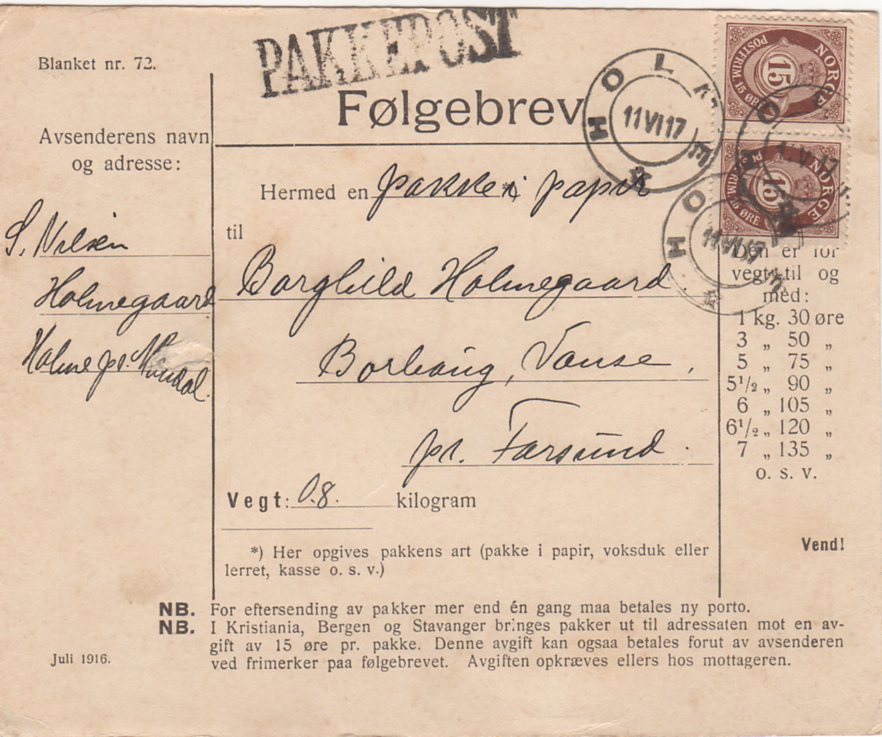 PAKKEPOST
Blanket nr. 72.
Følgebrev
NORGE
POSTFRIM
15
15 ØRE
NORGE
15
ØRE
HOLME
11 VI 17
HOLME
11 VI 17
Avsenderens navn
og adresse:
S. Nilsen
Holmegaard
Holme pr. Mandal.
Hermed en pakke *) i papir
til
Borghild Holmegaard
Borhaug, Vanse,
pr. Farsund.
Vegt: 0.8. kilogram
*) Her opgives pakkens art (pakke i papir, voksduk eller
lerret, kasse o. s. v.)
Den er for
vegt til og
med:
1 kg. 30 øre
3 „ 50 „
5 „ 75 „
5½ „ 90 „
6 „ 105 „
6½ „ 120 „
7 „ 135 „
o. s. v.
Vend!
NB. For eftersending av pakker mer end én gang maa betales ny porto.
NB. I Kristiania, Bergen og Stavanger bringes pakker ut til adressaten mot en av-
gift av 15 øre pr. pakke. Denne avgift kan ogsaa betales forut av avsenderen
ved frimerker paa følgebrevet. Avgiften opkræves ellers hos mottageren.
Juli 1916.